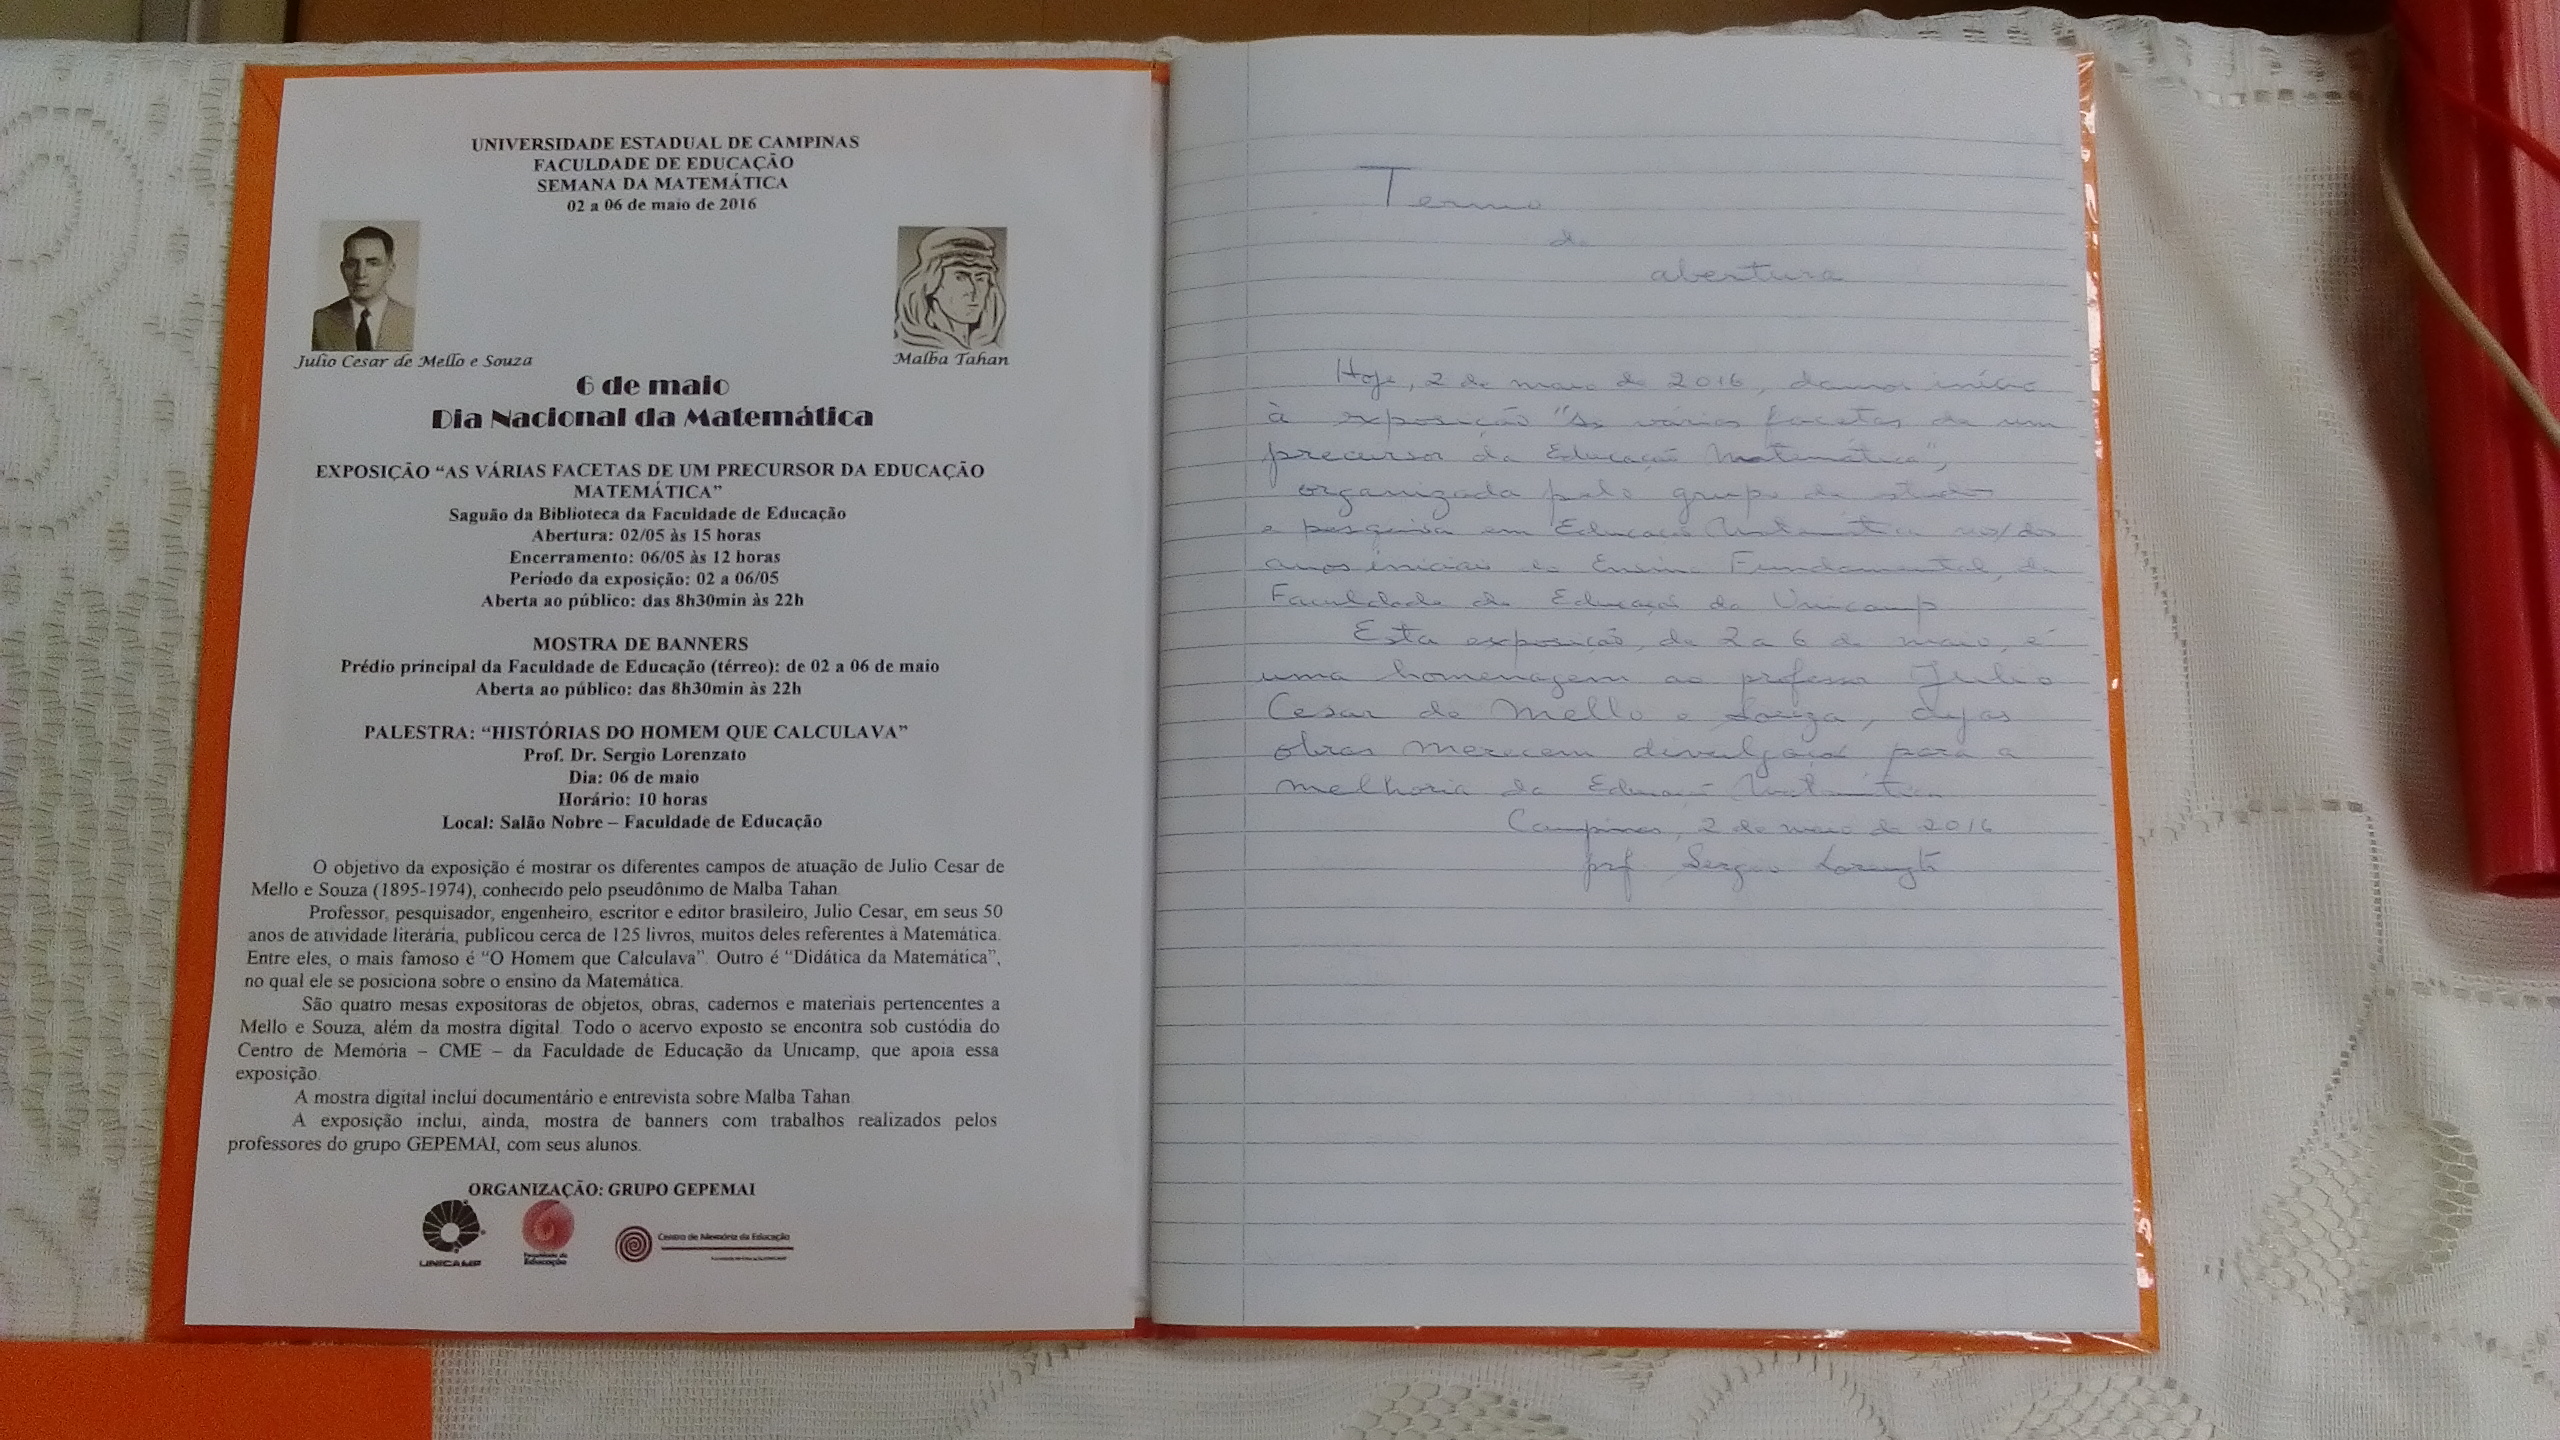 UNIVERSIDADE ESTADUAL DE CAMPINAS
FACULDADE DE EDUCAÇÃO
SEMANA DA MATEMÁTICA
02 a 06 de maio de 2016
Julio Cesar de Mello e Souza
Malba Tahan
6 de maio
Dia Nacional da Matemática
EXPOSIÇÃO “AS VÁRIAS FACETAS DE UM PRECURSOR DA EDUCAÇÃO
MATEMÁTICA”
Saguão da Biblioteca da Faculdade de Educação
Abertura: 02/05 às 15 horas
Encerramento: 06/05 às 12 horas
Período da exposição: 02 a 06/05
Aberta ao público: das 8h30min às 22h
MOSTRA DE BANNERS
Prédio principal da Faculdade de Educação (térreo): de 02 a 06 de maio
Aberta ao público: das 8h30min às 22h
PALESTRA: “HISTÓRIAS DO HOMEM QUE CALCULAVA”
Prof. Dr. Sergio Lorenzato
Dia: 06 de maio
Horário: 10 horas
Local: Salão Nobre – Faculdade de Educação
O objetivo da exposição é mostrar os diferentes campos de atuação de Julio Cesar de
Mello e Souza (1895-1974), conhecido pelo pseudônimo de Malba Tahan.
Professor, pesquisador, engenheiro, escritor e editor brasileiro, Julio Cesar, em seus 50
anos de atividade literária, publicou cerca de 125 livros, muitos deles referentes à Matemática.
Entre eles, o mais famoso é “O Homem que Calculava”. Outro é “Didática da Matemática”,
no qual ele se posiciona sobre o ensino da Matemática.
São quatro mesas expositoras de objetos, obras, cadernos e materiais pertencentes a
Mello e Souza, além da mostra digital. Todo o acervo exposto se encontra sob custódia do
Centro de Memória – CME – da Faculdade de Educação da Unicamp, que apoia essa
exposição.
A mostra digital inclui documentário e entrevista sobre Malba Tahan.
A exposição inclui, ainda, mostra de banners com trabalhos realizados pelos
professores do grupo GEPEMAI, com seus alunos.
ORGANIZAÇÃO: GRUPO GEPEMAI
UNICAMP
Faculdade de
Educação
Centro de Memória da Educação
Termo
de
abertura
Hoje, 2 de maio de 2016, damos início
à exposição "As várias facetas de um
precursor da Educação Matemática",
organizada pelo grupo de estudos
e pesquisa em Educação Matemática nos/dos
anos iniciais do Ensino Fundamental, da
Faculdade de Educação da Unicamp
Esta exposição, de 2 a 6 de maio, é
uma homenagem ao professor Julio
Cesar de Mello e Souza, cujas
obras merecem divulgação para a
melhoria da Educação Matemática
Campinas, 2 de maio de 2016
prof Sergio Lorenzato